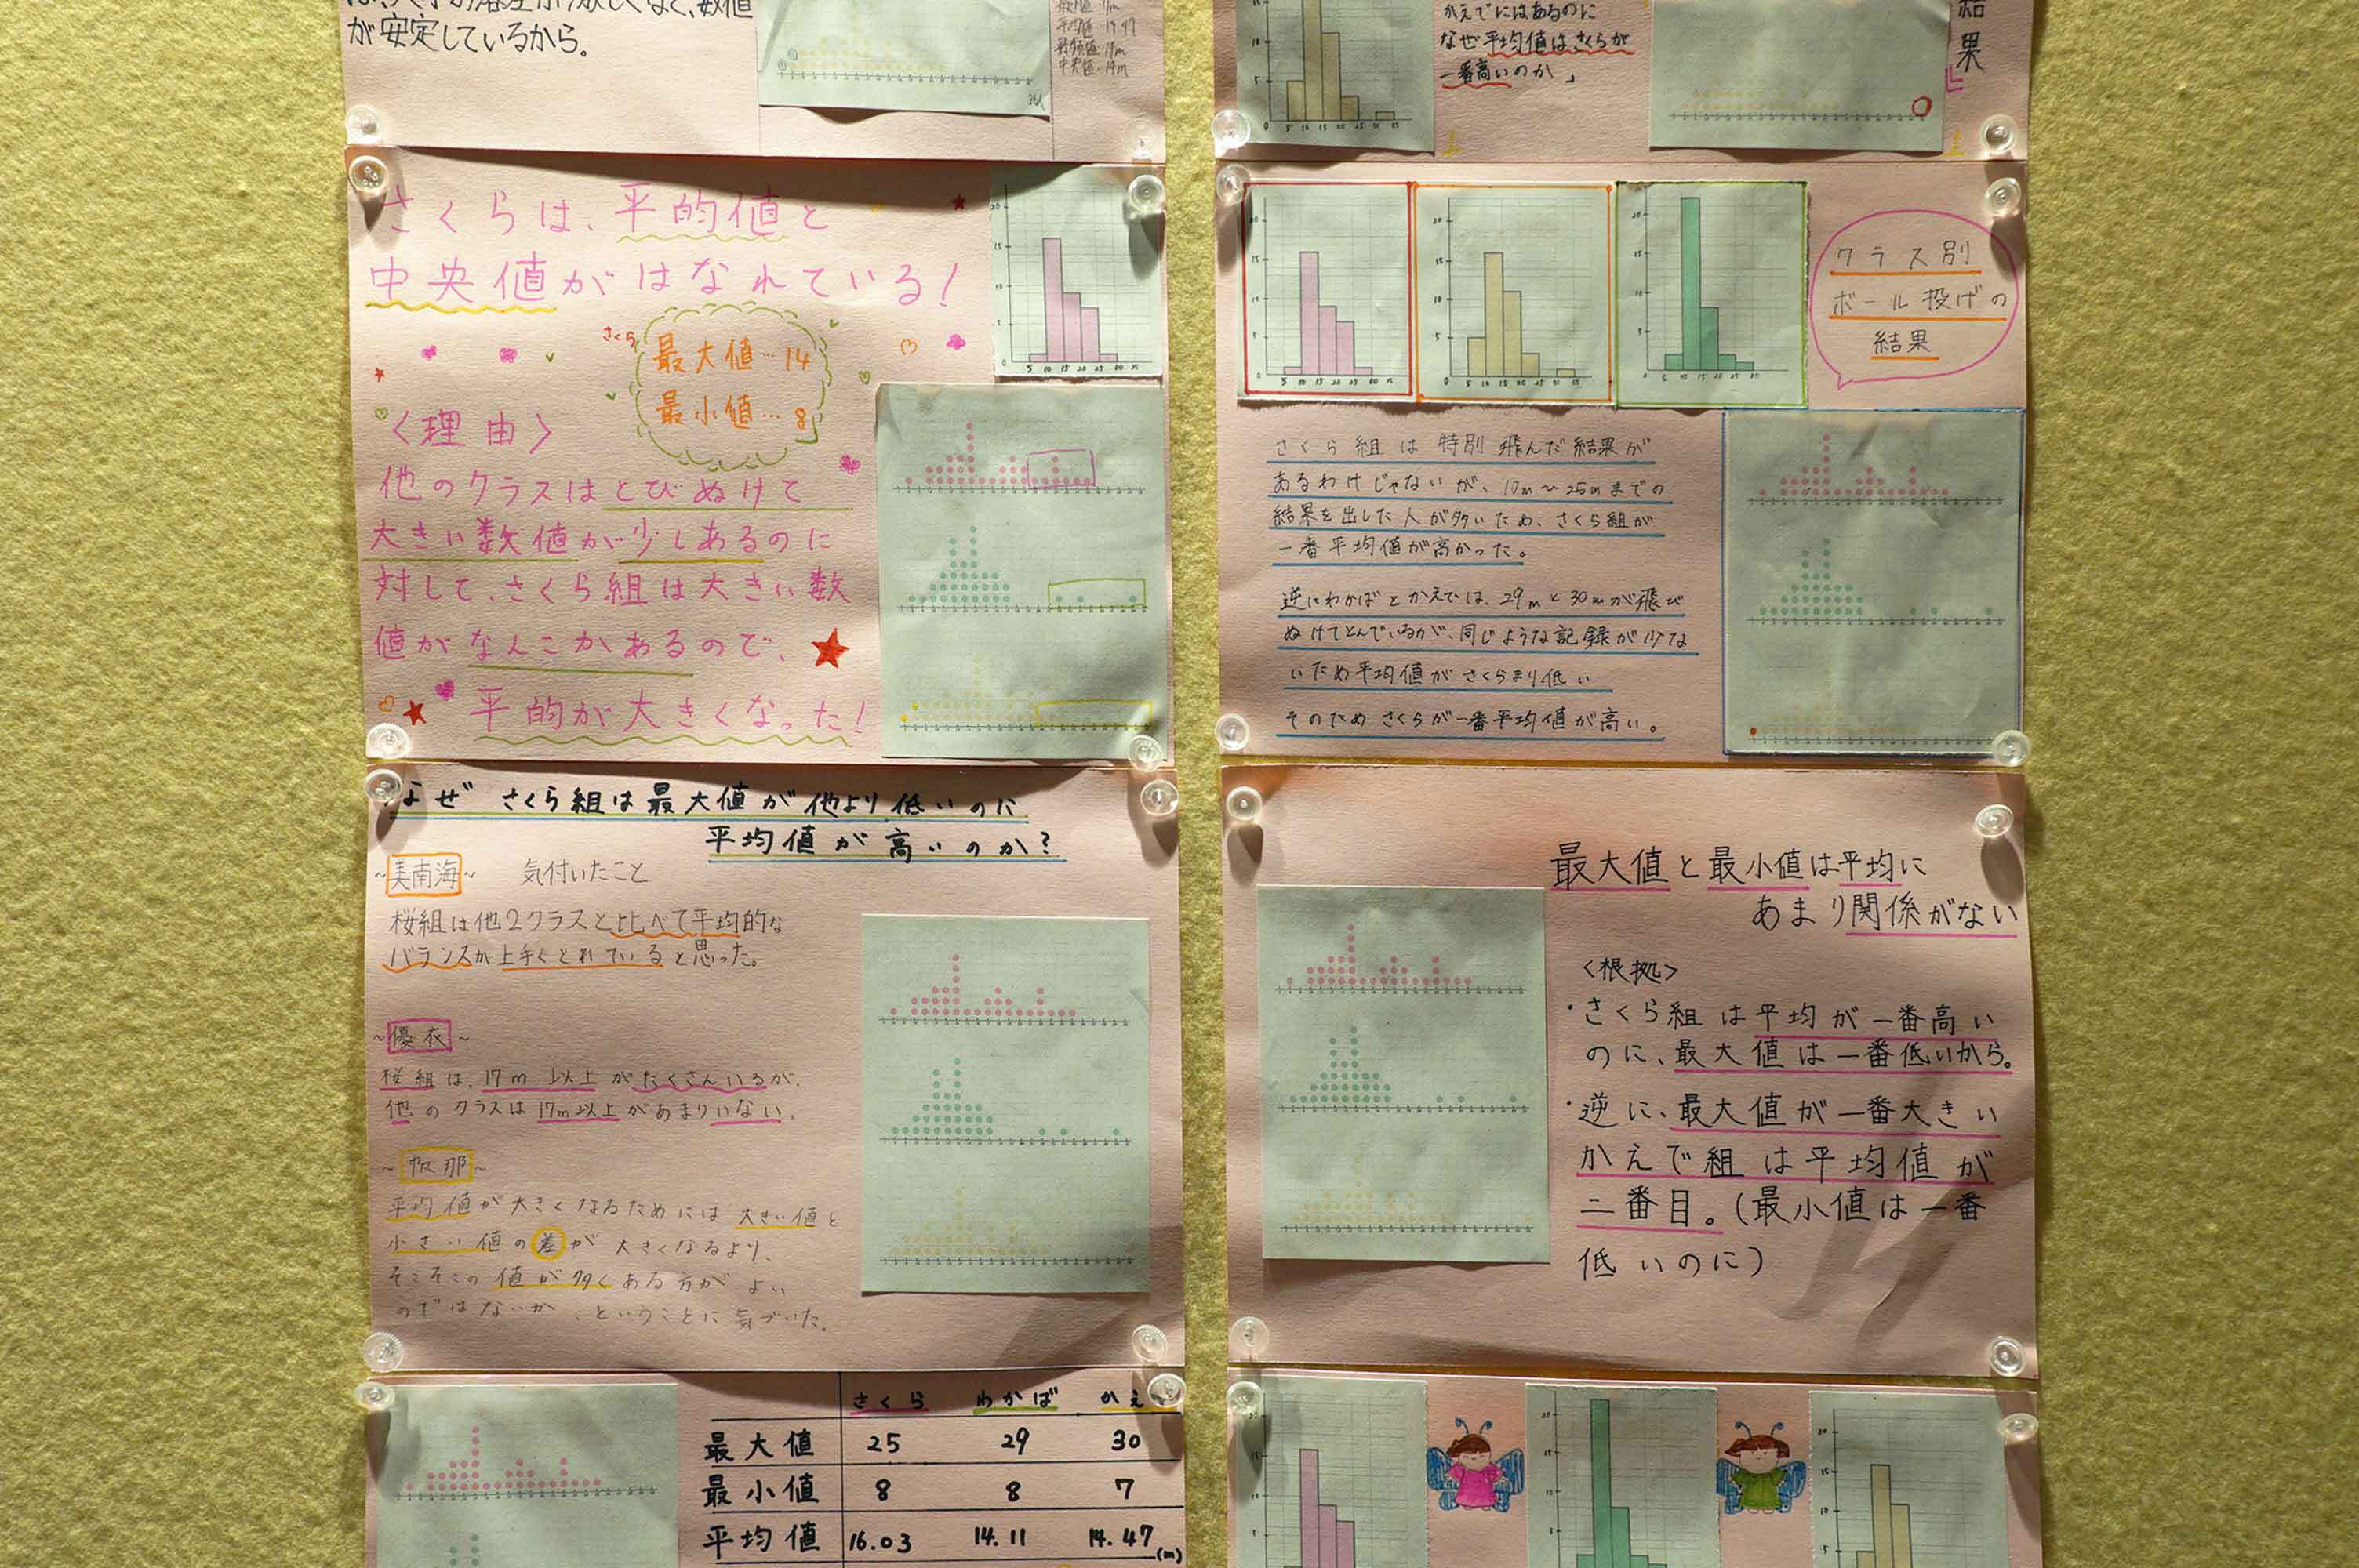 が安定しているから。
平均値
最頻値 14m
中央値 14m
さくらは、平的値と
中央値がはなれている!
さくら
最大値…14
最小値…8
〈理由〉
他のクラスはとびぬけて
大きい数値が少しあるのに
対して、さくら組は大きい数
値がなんこかあるので、
平的が大きくなった!
なぜ さくら組は最大値が他より低いのに
平均値が高いのか?
~美南海~ 気付いたこと
桜組は他2クラスと比べて平均的な
バランスが上手くとれていると思った。
~優衣~
桜組は、17m以上がたくさんいるが、
他のクラスは17m以上があまりいない。
~帆那~
平均値が大きくなるためには大きい値と
小さい値の差が大きくなるより、
そこそこの値が多くある方がよい
のではないか、ということに気づいた。
さくら わかば かえ
最大値 25 29 30
最小値 8 8 7
平均値 16.03 14.11 14.47(m)
かえでにはあるのに
なぜ平均値はさくらが
一番高いのか」
結果』
クラス別
ボール投げの
結果
さくら組は特別飛んだ結果が
あるわけじゃないが、10m~25mまでの
結果を出した人が多いため、さくら組が
一番平均値が高かった。
逆にわかばとかえでは、29mと30mが飛び
ぬけてとんでいるが、同じような記録が少な
いため平均値がさくらより低い
そのためさくらが一番平均値が高い。
最大値と最小値は平均に
あまり関係がない
〈根拠〉
・さくら組は平均が一番高い
のに、最大値は一番低いから。
・逆に、最大値が一番大きい
かえで組は平均値が
二番目。(最小値は一番
低いのに)